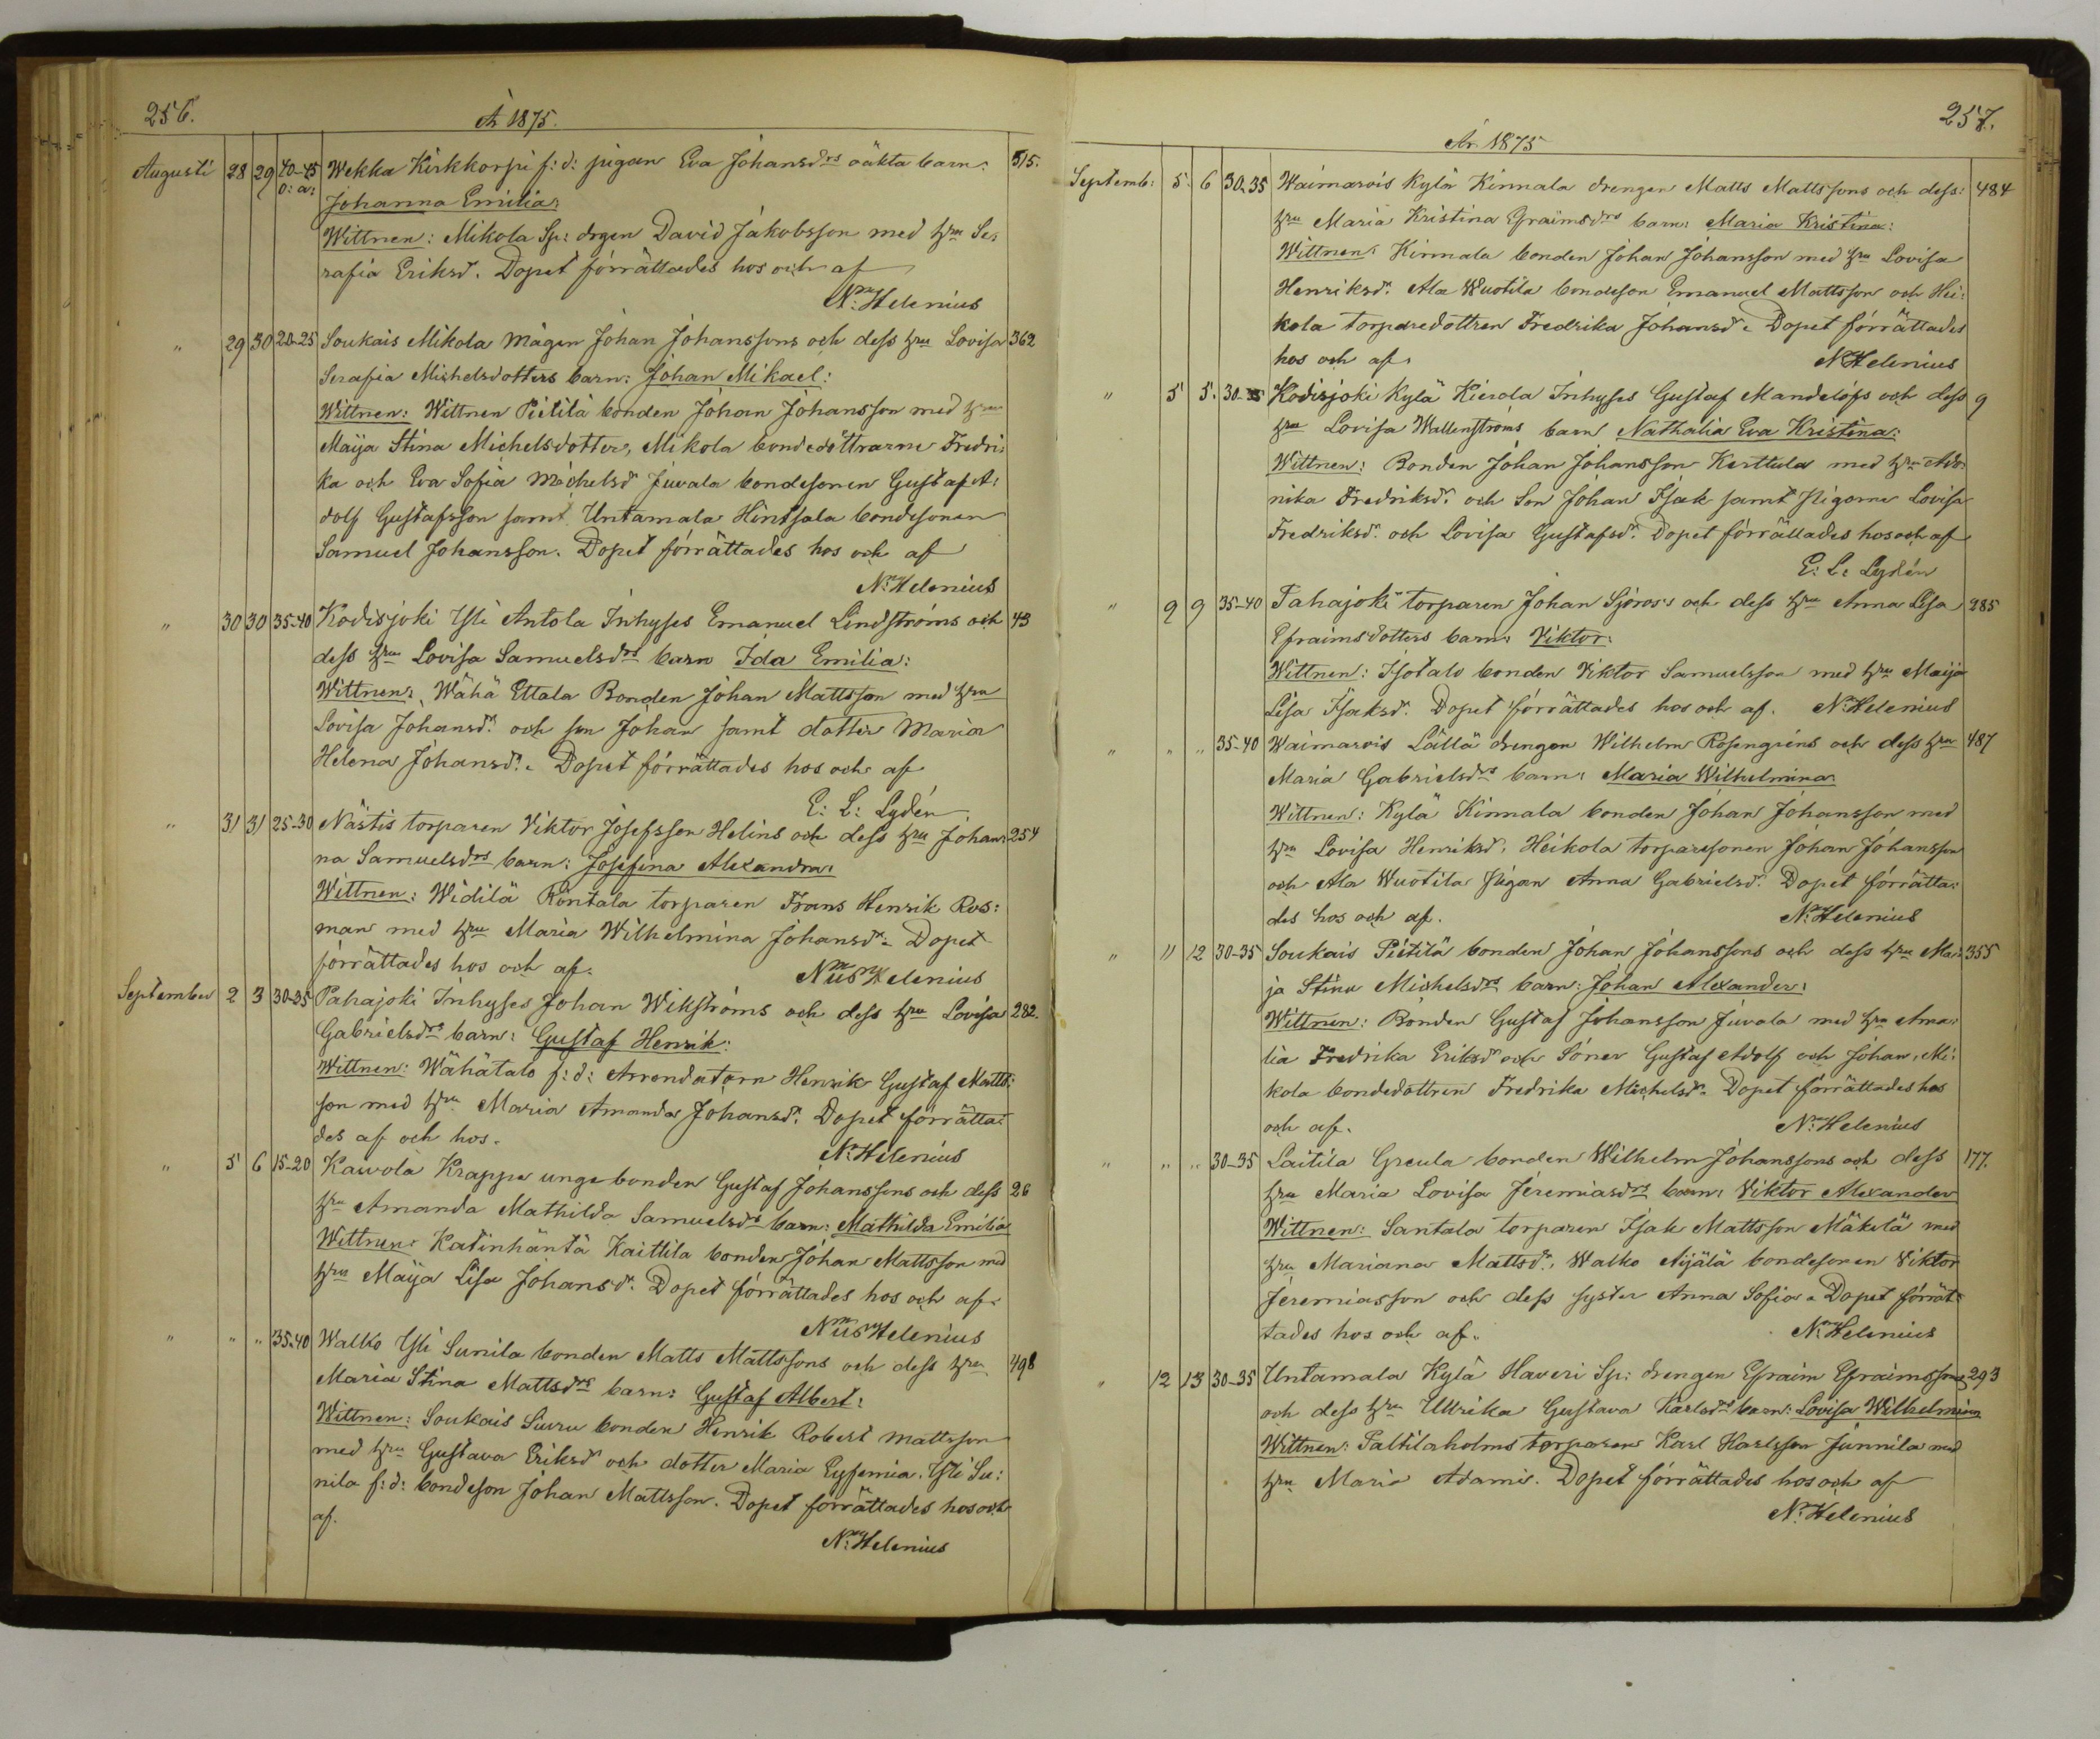 256.
År 1875.
Augusti 28 29 40-45 Wekka Kirkkorpi f: d: pigan Eva Johansdrs oäkta barn: 515.
o: ä: Johanna Emilia:
Wittnen: Mikola Sp: drgen David Jakobsson med hru Se:
rafia Eriksd. Dopet förrättades hos och af
N. Helenius
" 29 30 20-25 Soukais Mikola mågen Johan Johanssons och dess hru Lovisa 362
Serafia Michelsdotters barn: Johan Mikael:
Wittnen: Wittnen Pietilä bonden Johan Johansson med hru
Maija Stina Michelsdotter, Mikola bondedöttrarne Fredri:
ka och Eva Sofia Michelsdr Juvala bondesonen Gustaf A:
dolf Gustafsson samt Untamala Hintsala bondesonen
Samuel Johansson. Dopet förrättades hos och af
N. Helenius
" 30 30 35-40 Kodisjoki Yli Antola Inhyses Emanuel Lindströms och 43
dess hru Lovisa Samuelsdrs barn Ida Emilia:
Wittnen: Wähä Ettala Bonden Johan Mattsson med hru
Lovisa Johansdr. och son Johan samt dotter Maria
Helena Johansdr. Dopet förrättades hos och af
E: L: Lydén
" 31 31 25-30 Nästis torparen Viktor Josefsson Helins och dess hru Johan: 254
na Samuelsdrs barn: Josefina Alexandra:
Wittnen: Widilä Röntala torparen Frans Henrik Ros:
man med hru Maria Wilhelmina Johansdr. Dopet
förrättades hos och af.
Nius Helenius
September 2 3 30-35 Pahajoki Inhyses Johan Wikströms och dess hru Lovisa 282.
Gabrielsdrs barn: Gustaf Henrik:
Wittnen: Wähätalo f: d: Arrendatorn Henrik Gustaf Matts:
son med hru Maria Amanda Johansdr. Dopet förrätta:
des af och hos.
N. Helenius
" 5 6 15-20 Kaivola Krappe unga bonden Gustaf Johanssons och dess 26
hru Amanda Mathilda Samuelsdrs barn: Mathilda Emilia
Wittnen: Katinhäntä Kaittila bonden Johan Mattsson med
hru Maija Lisa Johansdr. Dopet förrättades hos och af.
Nius Helenius
" " " 35-40 Walko Yli Sunila bonden Matts Mattssons och dess hru 498
Maria Stina Mattsdrs barn: Gustaf Albert:
Wittnen: Soukais Suuru bonden Henrik Robert Mattsson
med hru Gustava Eriksdr och dotter Maria Eufemia. Yli Su:
nila f: d: bondeson Johan Mattsson. Dopet förrättades hos och
af.
N. Helenius
257.
År 1875
Septemb: 5 6 30-35 Waimarois Kylä Kinnala drengen Matts Mattssons och dess: 484
hru Maria Kristina Efraimsdrs barn: Maria Kristina:
Wittnen: Kinnala bonden Johan Johansson med hru Lovisa
Henriksdr. Ala Wuotila bondeson Emanuel Mattsson och Hei:
kola torparedottren Fredrika Johansdr. Dopet förrättades
hos och af.
N Helenius
" 5 5. 30-35 Kodisjoki Kylä Kierola Inhyses Gustaf Mandelöfs och dess 9
hru Lovisa Wallenströms barn Nathalia Eva Kristina:
Wittnen: Bonden Johan Johansson Kerttula med hru
nika Fredriksdr. och Son Johan Isak samt Pigorna Lovisa
Fredriksdr. och Lovisa Gustafsdr. Dopet förrättades hos och af
E: L: Lydén
" 9 9 35-40 Pahajoki torparen Johan Sjöros's och dess hru Anna Lisa 285
Efraimsdotters barn: Viktor:
Wittnen: Isotalo bonden Viktor Samuelsson med hru Maija
Lisa Isaksdr. Dopet förrättades hos och af. N. Helenius
" " " 35-40 Waimarois Lällä drengen Wilhelm Rosengréns och dess hru 487
Maria Gabrielsdrs barn: Maria Wilhelmina:
Wittnen: Kylä Kinnala bonden Johan Johansson med
hru Lovisa Henriksdr. Heikola torparesonen Johan Johansson
och Ala Wuotila Pigan Anna Gabrielsdr. Dopet förrätta:
des hos och af.
N. Helenius
" 11 12 30-35 Soukais Pietilä bonden Johan Johanssons och dess hru Mai: 355
ja Stina Michelsdrs barn: Johan Alexander:
Wittnen: Bonden Gustaf Johansson Juvala med hru Ama:
lia Fredrika Eriksdr och Söner Gustaf Adolf och Johan, Mi:
kola bondedottren Fredrika Michelsdr. Dopet förrättades hos
och af.
N. Helenius
" " " 30-35 Laitila Greula bonden Wilhelm Johanssons och dess 177.
hru Maria Lovisa Jeremiasdrs barn: Viktor Alexander
Wittnen: Santala torparen Isak Mattsson Mäkelä med
hru Mariana Mattsdr. Walko Äijälä bondesonen Viktor
Jeremiasson och dess syster Anna Sofia. Dopet förrät:
tades hos och af.
N. Helenius
" 12 13 30-35 Untamala Kylä Haveri Sp: drengen Efraim Efraimssons 293
och dess hru Ullrika Gustava Karlsdrs barn: Lovisa Wilhelmina
Wittnen: Paltilaholms torparen Karl Karlsson Junnila med
hru Maria Adamsd. Dopet förrättades hos och af
N. Helenius